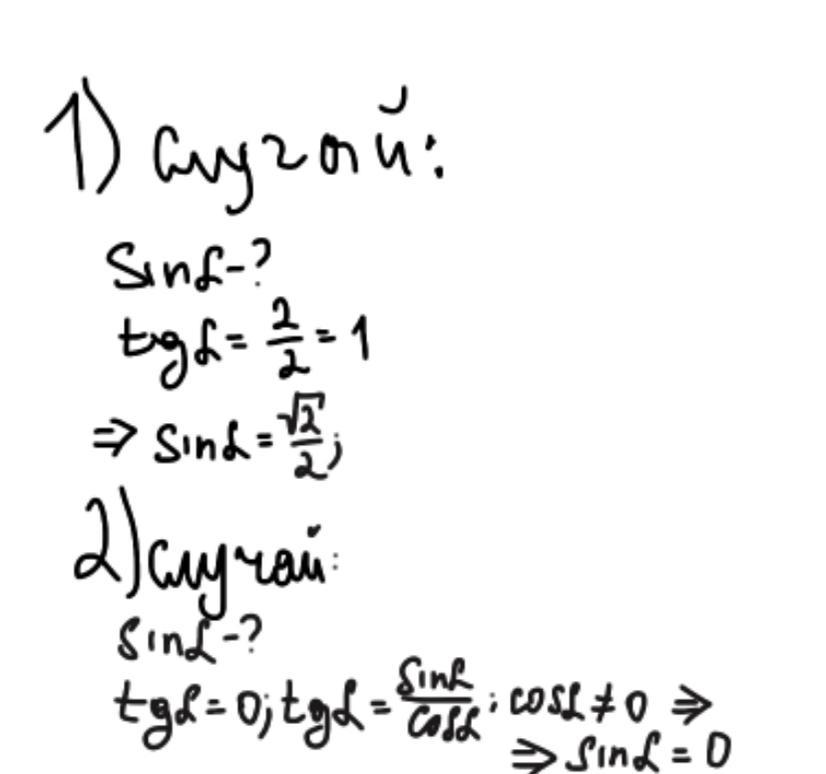 1) случай:
sinα-?
tgα = 2/2 = 1
⇒ sinα = √2/2;
2) случай:
sinα-?
tgα = 0; tgα = sinα/cosα; cosα ≠ 0 ⇒
⇒ sinα = 0